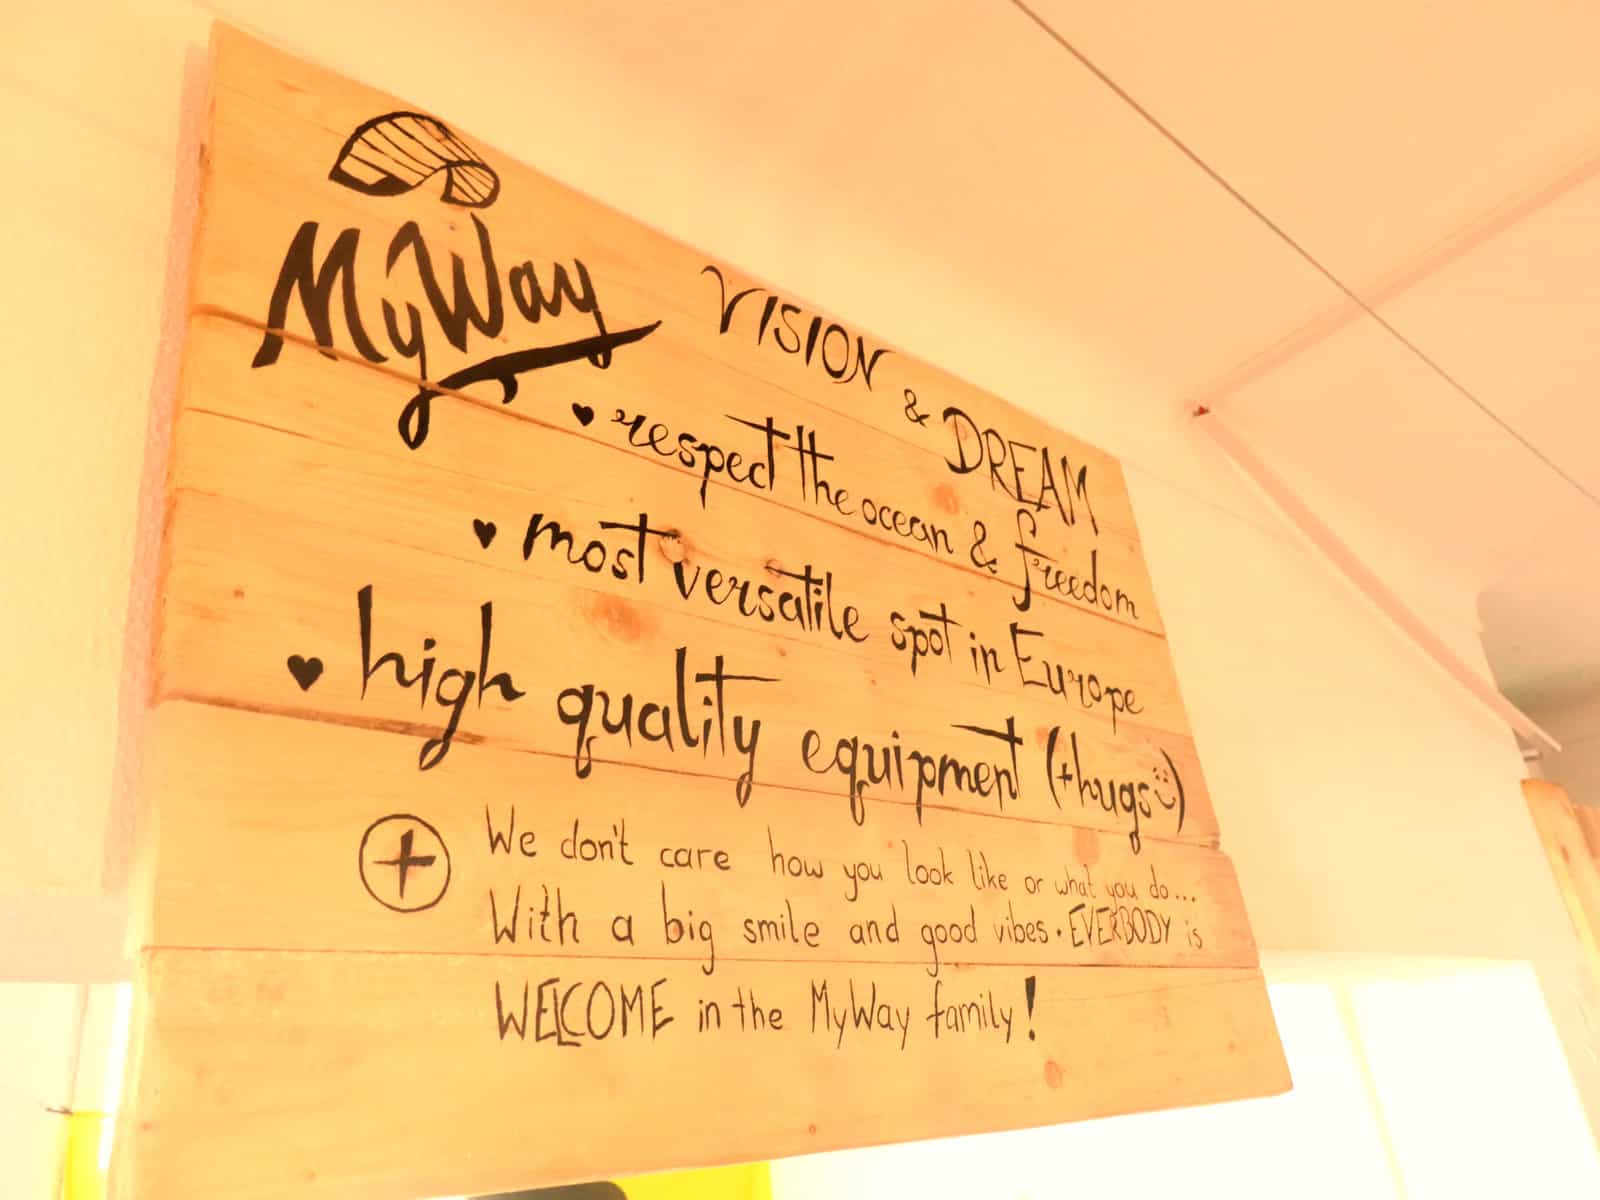 MyWay
VISION & DREAM
♥ respect the ocean & freedom
♥ most versatile spot in Europe
♥ high quality equipment (+hugs☺)
+ We don't care how you look like or what you do...
With a big smile and good vibes. EVERBODY is
WELCOME in the MyWay family!